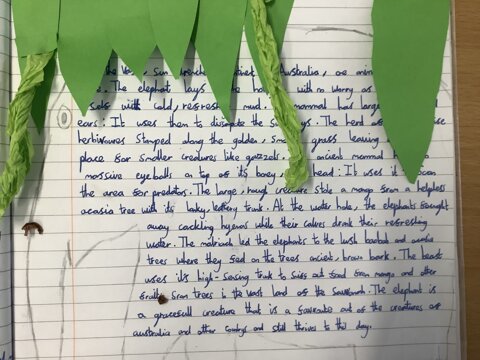 the Vast, Sun drenched Australia, one
The elephant lays the with no worry as
with cold, refreshing mud. mammal has large
ears. It uses them to dissipate the The herd of
herbivoures Stmped along the golden, grass leaving
place for smaller creatures like gazzels. ancient mammal
massive eyeballs on top of its boney head. It uses it to scan
the area for predators. The large, rough creature stole a mango from a helpless
acasia tree with its lanky, leathery trunk. At the water hole, the elephants fought
away cackling hyenas while their calves drink their refreshing
water. The matriach led the elephants to the lush baobab and
trees where they feed on the trees ancient, brown bark. The beast
uses its high-sensing trunk to suss out food from mango and other
from trees in the vast land of the Savannah. The elephant is
a gracefull creature that is a favourate out of the creatures of
australia and other countrys and still thrives to this day.